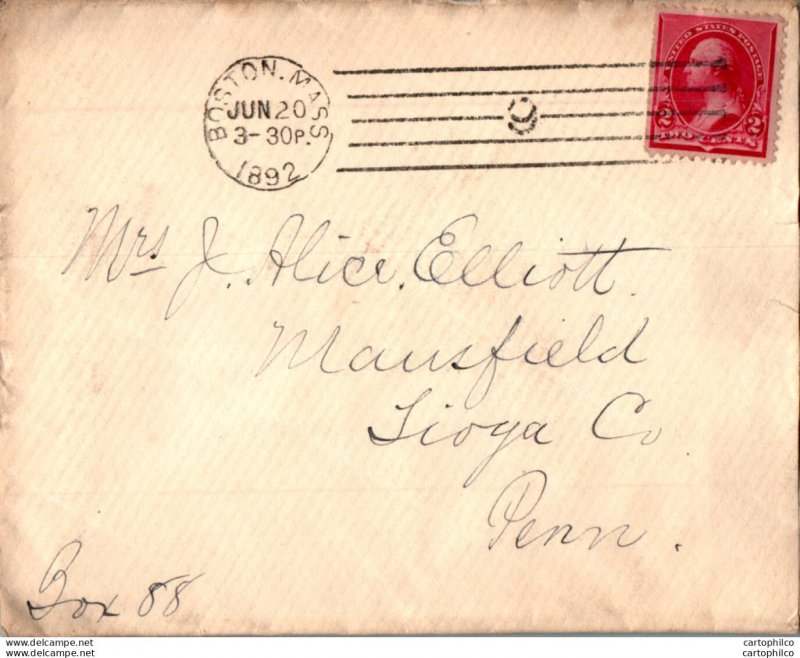 BOSTON. MASS
JUN 20
3-30P.
1892
9
UNITED STATES POSTAGE
2 TWO CENTS 2
Mrs J. Alice. Elliott.
Mansfield
Tioga Co
Penn.
Box 88
cartophilco
cartophilco
cartophilco
cartophilco